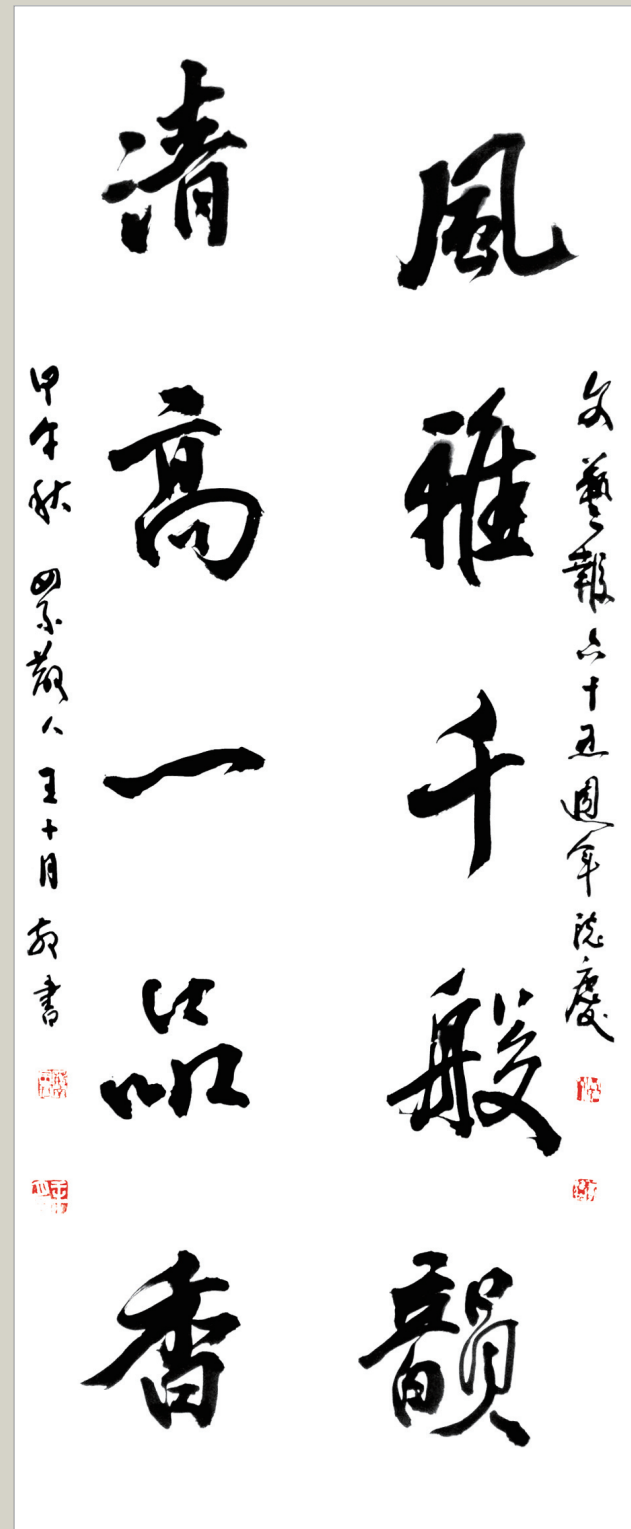 文藝報六十五週年誌慶
風雅千般韻
清高一品香
甲午秋 四素散人王十月敬書